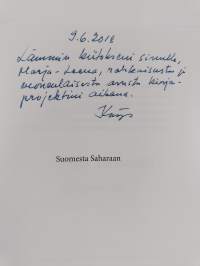 9.6.2018
Lämmin kiitokseni sinulle,
Marja-Leena, ratkaisusta ja
avusta kirja-
projektini aikana.
Suomesta Saharaan